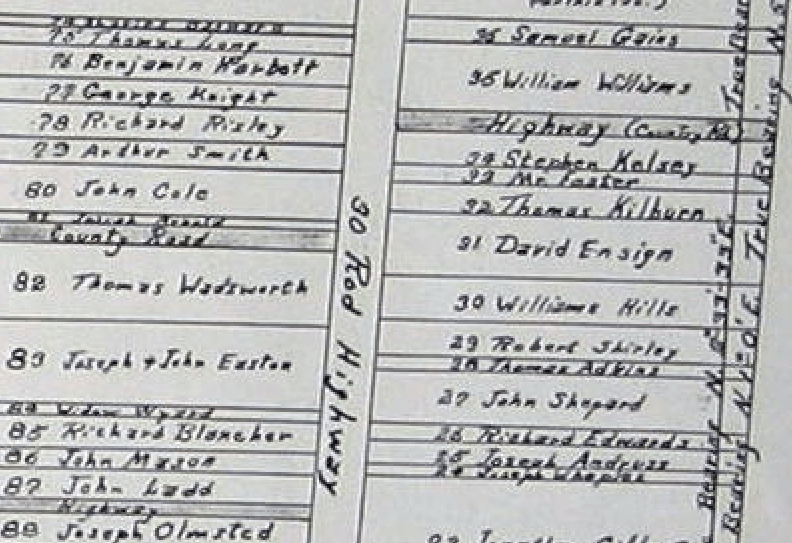 75 Thomas Long
76 Benjamin Harbott
77 George Knight
78 Richard Risley
79 Arthur Smith
80 John Cole
81 Josiah
County Road
82 Thomas Wadsworth
83 Joseph & John Easton
84 Widow
85 Richard Blancher
86 John Mason
87 John Ladd
Highway
88 Joseph Olmsted
30 Rod Highway
36 Samuel Gains
35 William Williams
Highway (Country Rd)
34 Stephen Kelsey
33 Mr. Foster
32 Thomas Kilburn
31 David Ensign
30 Williams Hills
29 Robert Shirley
28 Thomas Adkins
27 John Shepard
26 Richard Edwards
25 Joseph Andruss
24 Joseph Whaples
Bearing N.
True
Bearing
True Bearing N.